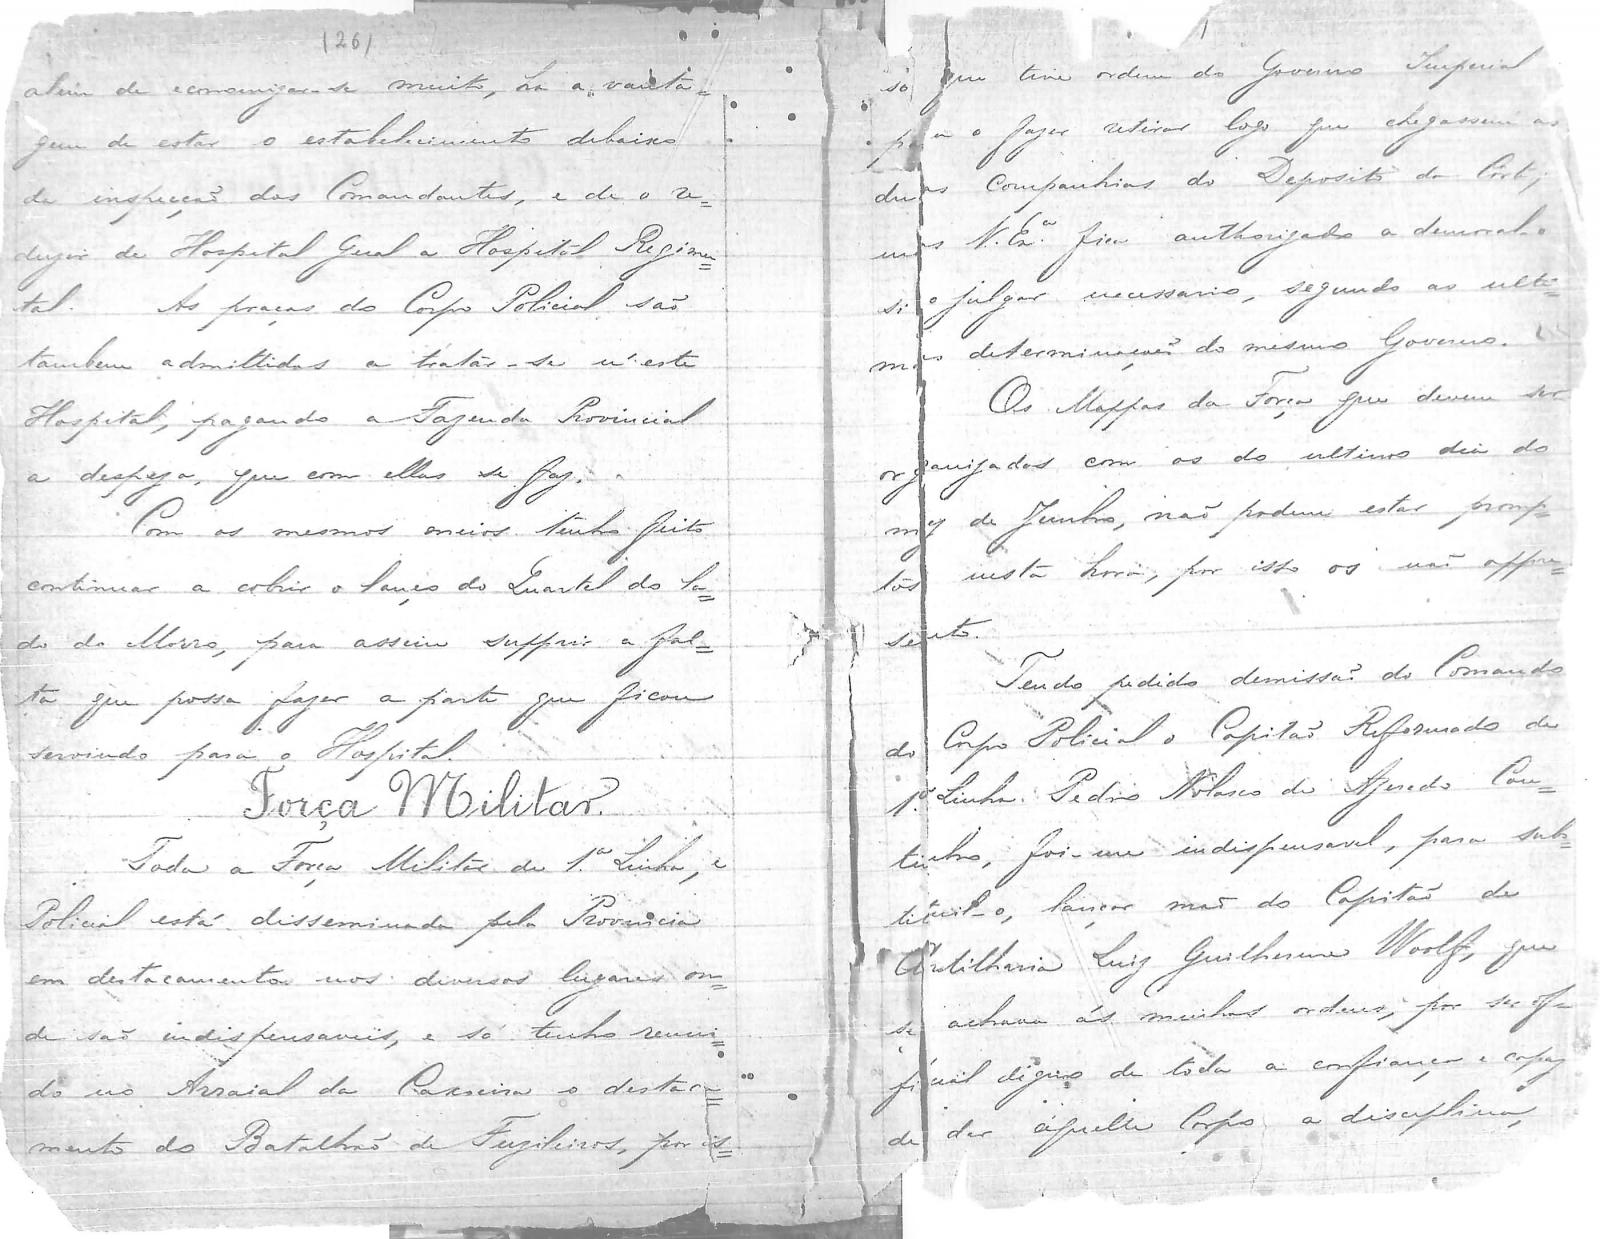 (26)
alem de economizar-se muito, ha a vanta=
gem de estar o estabelecimento debaixo
da inspecção dos Comandantes, e de o re=
duzir de Hospital Geral a Hospital Regimen=
tal. As praças do Corpo Policial são
tambem admittidas a tratar-se n'este
Hospital, pagando a Fazenda Provincial
a despeza, que com ellas se faz.
Com os mesmos meios tenho feito
continuar a cobrir o lanço do Quartel do la=
do do Morro, para assim supprir a fal=
ta que possa fazer a parte que ficou
servindo para o Hospital.
Força Militar.
Toda a Força Militar de 1.ª Linha, e
Policial está disseminada pela Provincia
em destacamentos nos diversos lugares on=
de são indispensaveis, e só tenho reuni=
do no Arraial da Caxoeira o destaca=
mento do Batalhão de Fuzileiros, por is=
so que tive ordem do Governo Imperial
para o fazer retirar logo que chegassem as
duas Companhias do Deposito da Côrte;
mas V. Ex.ª fica authorizado a demoral-o
si o julgar necessario, segundo as ulti=
mas determinações do mesmo Governo.
Os Mappas da Força que devem ser
organizados com os do ultimo dia do
mez de Junho, não podem estar promp=
tos nesta hora, por isso os não appre=
sento.
Tendo pedido demissão do Comando
do Corpo Policial o Capitão Reformado de
1.ª Linha Pedro Nolasco de Azeredo Cou=
tinho, foi-me indispensavel, para subs=
tituil-o, lançar mão do Capitão de
Artilharia Luiz Guilherme Woolf, que
se achava ás minhas ordens, por ser of=
ficial digno de toda a confiança e capaz
de dar áquelle Corpo a disciplina,